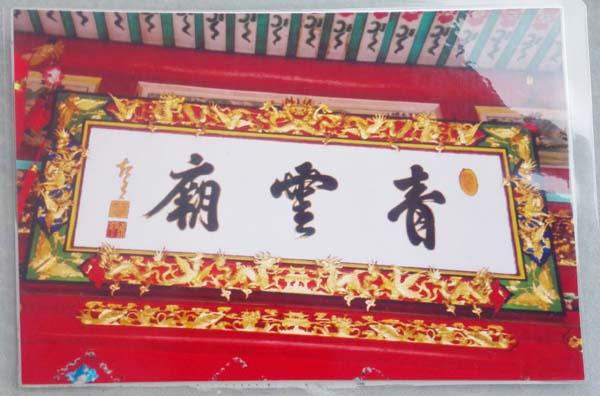 青雲廟